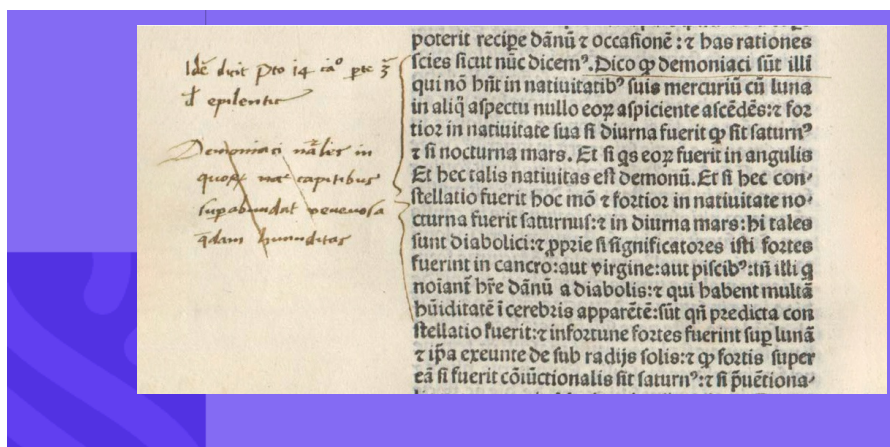 Idē dicit Pto 14 caº pte 3̄
đ epilentic
Demoniaci nāłit in
capitibus
supabundat venenosa
q̄dam humiditas
poterit recipe dānū ⁊ occasionē : ⁊ has rationes
scies sicut nūc dicemꝰ. Dico ꝙ demoniaci sūt illi
qui nō hn̄t in natiuitatibꝰ suis mercuriū cū luna
in aliq̄ aspectu nullo eoꝝ aspiciente ascēdēs: ⁊ foꝛ
tioꝛ in natiuitate sua si diurna fuerit ꝙ sit saturnꝰ
⁊ si nocturna mars. Et si q̄s eoꝝ fuerit in angulis
Et hec talis natiuitas est demonū. Et si hec con-
stellatio fuerit hoc mō ⁊ foꝛtioꝛ in natiuitate no-
cturna fuerit saturnus: ⁊ in diurna mars: hi tales
sunt diabolici: ⁊ ꝓprie si significatores isti foꝛtes
fuerint in cancro: aut virgine: aut piscibꝰ: tn̄ illi q̄
noīant̄ hr̄e dānū a diabolis: ⁊ qui habent multā
hūiditatē ī cerebris apparētē: sūt qn̄ pꝛedicta con
stellatio fuerit: ⁊ infoꝛtune foꝛtes fuerint sup̱ lunā
⁊ ip̄a exeunte de sub radijs solis: ⁊ ꝙ foꝛtis super
eā si fuerit cōiūctionalis sit saturnꝰ: ⁊ si p̄uētiona-